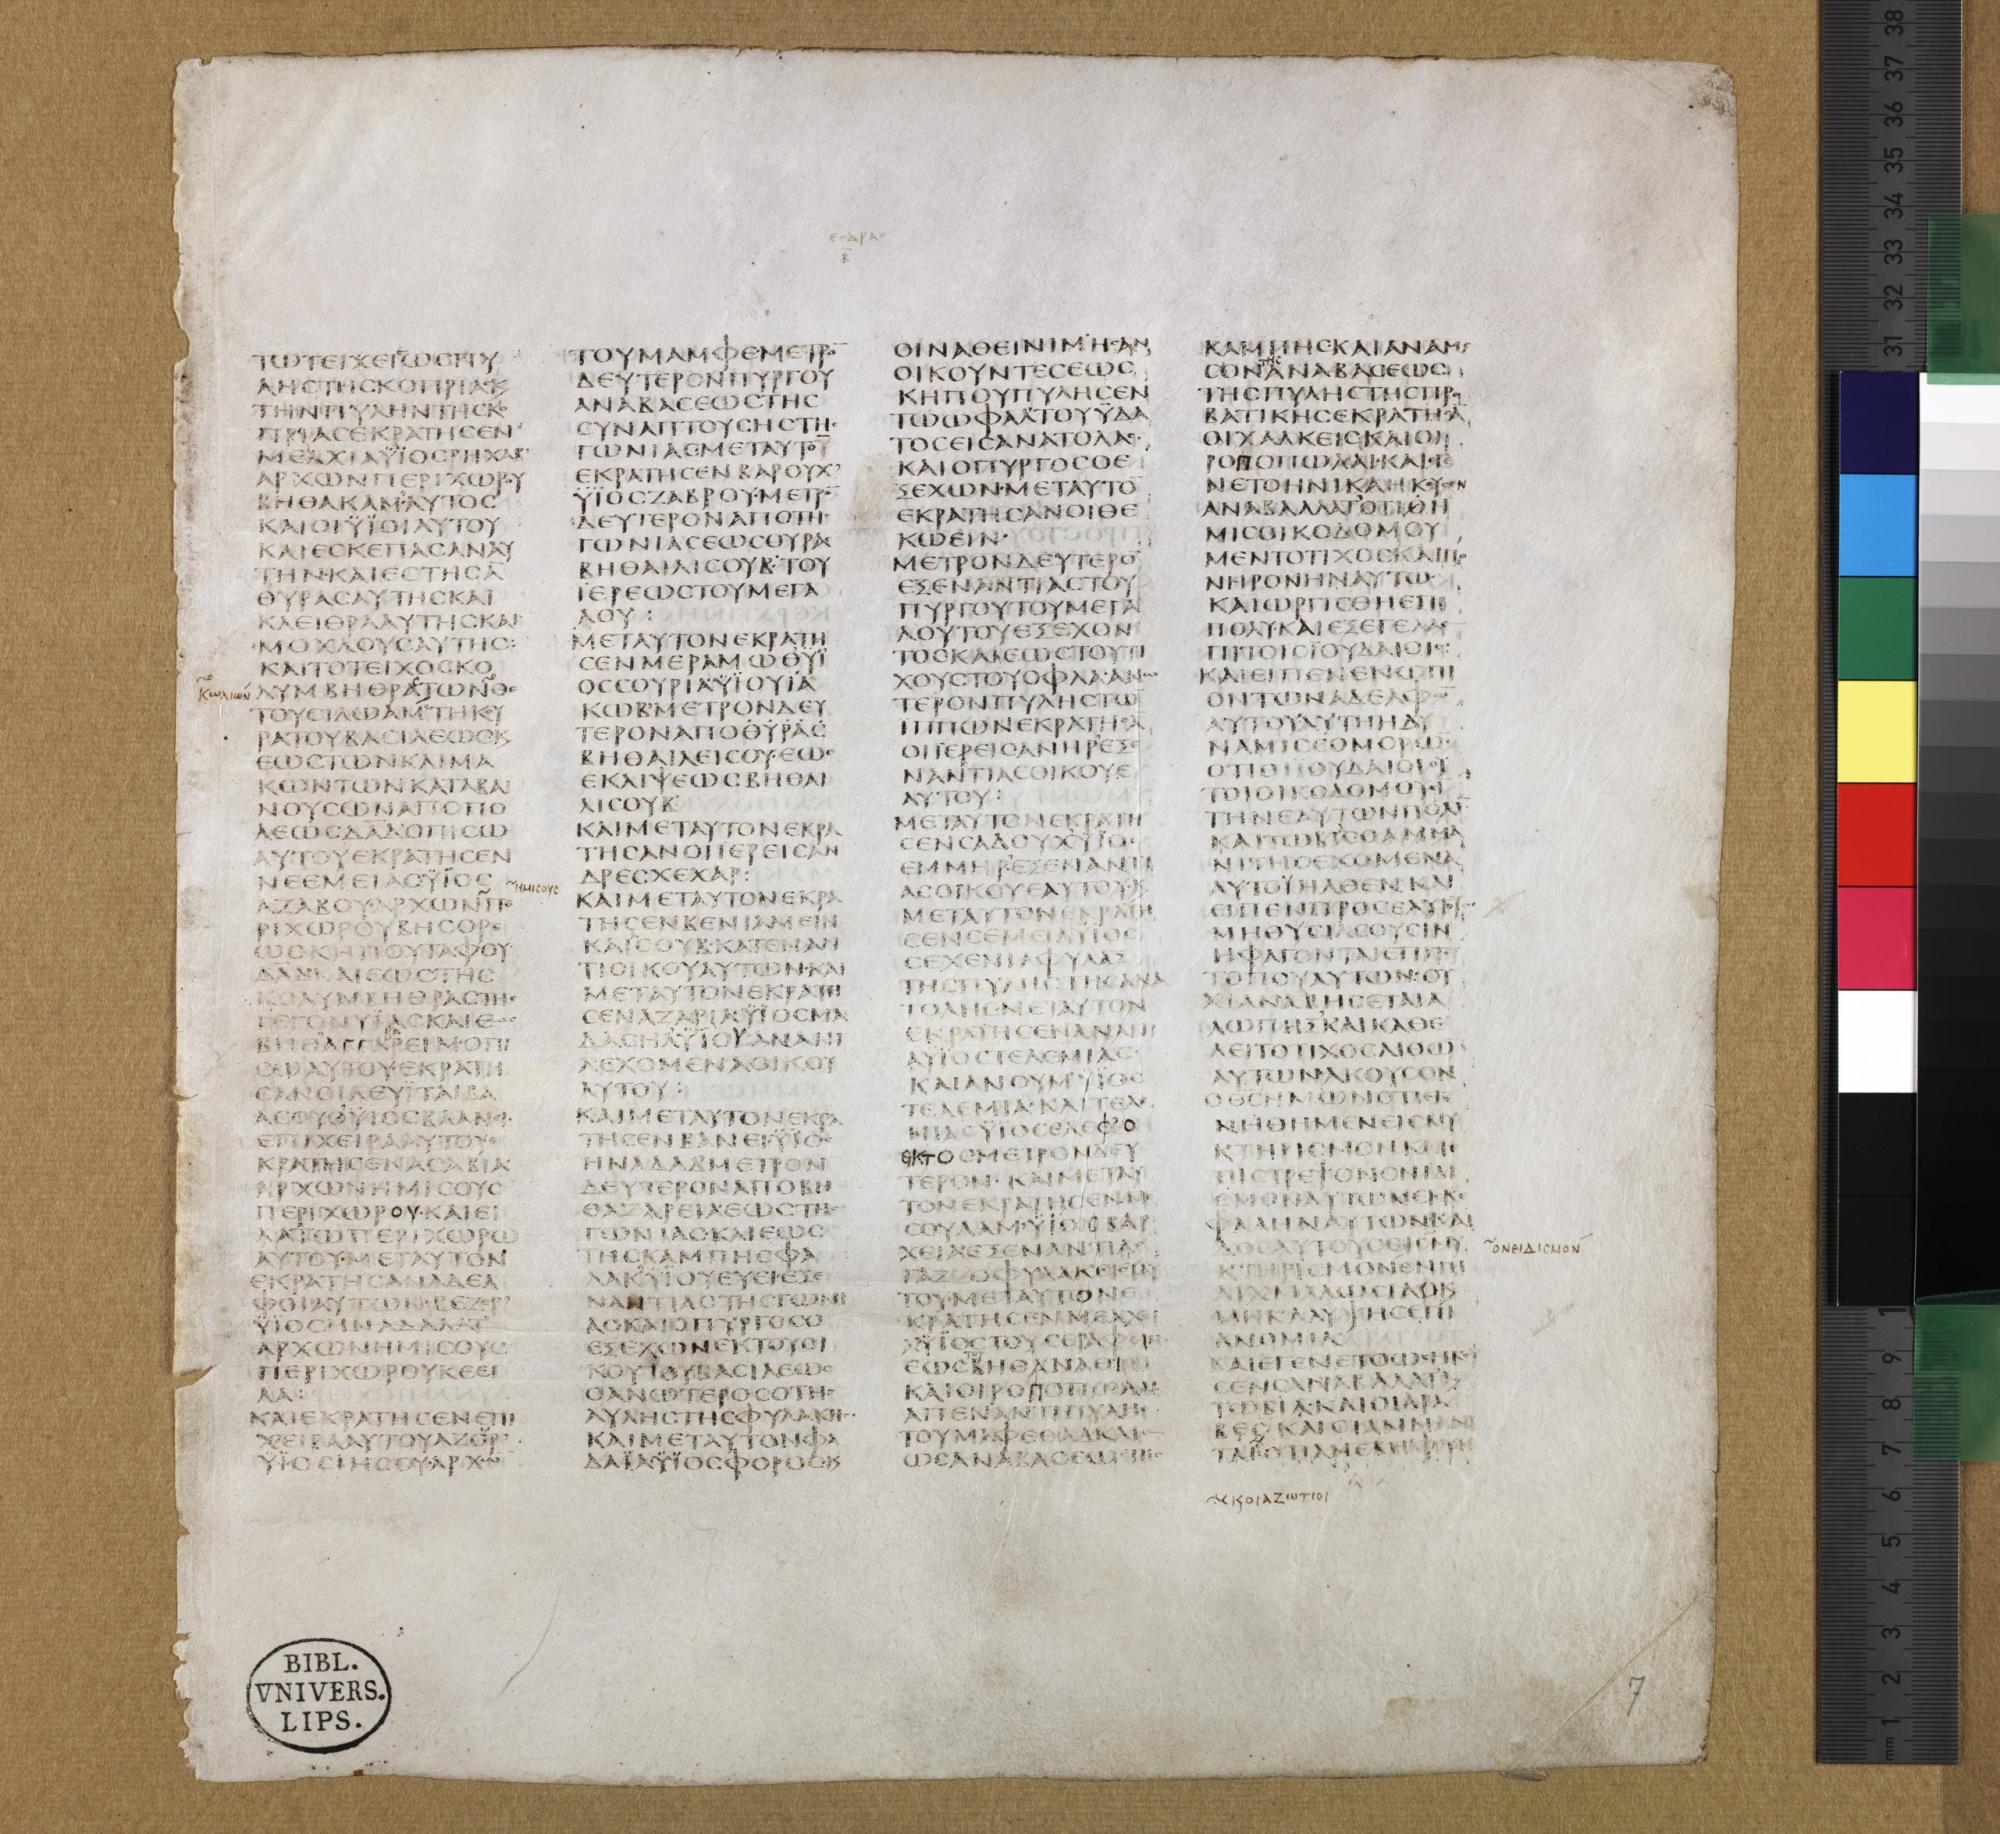 ΕϹΔΡΑϹ
Β
ΤΩΤΕΙΧΕΙ
ΛΗϹΤΗϹΚΟΠΡΙΑϹΚ
ΤΗΝΠΥΛΗΝΤΗϹΚΟ
ΠΡΙΑϹΕΚΡΑΤΗϹΕΝ
ΜΕΛΧΙΑΫΪΟϹΡΗΧΑΒ
ΑΡΧΩΝΠΕΡΙΧΩΡΟΥ
ΒΗΘΑΚΑΜΑΥΤΟϹ
ΚΑΙΟΙΫΪΟΙΑΥΤΟΥ
ΚΑΙΕϹΚΕΠΑϹΑΝΑΥ
ΤΗΝΚΑΙΕϹΤΗϹΑ̅
ΘΥΡΑϹΑΥΤΗϹΚΑΙ
ΚΛΕΙΘΡΑΑΥΤΗϹΚΑΙ
ΜΟΧΛΟΥϹΑΥΤΗϹ:
ΚΑΙΤΟΤΕΙΧΟϹΚΟ
ΛΥΜΒΗΘΡΑϹΤΩΝ
ΚΩΔΙΩΝ
ΤΟΥϹΙΛΩΑΜΤΗΚΟΥ
ΡΑΤΟΥΒΑϹΙΛΕΩϹΚ
ΕΩϹΤΩΝΚΛΙΜΑ
ΚΩΝΤΩΝΚΑΤΑΒΑΙ
ΝΟΥϹΩΝΑΠΟΠΟ
ΛΕΩϹΔΑΔΟΠΙϹΩ
ΑΥΤΟΥΕΚΡΑΤΗϹΕΝ
ΝΕΕΜΕΙΑϹΫΪΟϹ
ΗΜΙϹΟΥϹ
ΑΖΑΒΟΥΑΡΧΩΝ
ΡΙΧΩΡΟΥΒΗϹΟΡ
ΩϹΚΗΠΟΥΤΑΦΟΥ
ΔΑΔΚΑΙΕΩϹΤΗϹ
ΚΟΛΥΜΒΗΘΡΑϹΤΗϹ
ΓΕΓΟΝΥΪΑϹΚΑΙΕΩϹ
ΒΗΘΑΓΓΑΡΕΙΜΟΠΙ
ϹΩΑΥΤΟΥΕΚΡΑΤΗ
ϹΑΝΟΙΛΕΥΪΤΑΙΒΑ
ΕΠΙΧΕΙΡΑΑΥΤΟΥΕ
ΚΡΑΤΗϹΕΝΑϹΑΒΙΑ
ΑΡΧΩΝΗΜΙϹΟΥϹ
ΠΕΡΙΧΩΡΟΥΚΑΙΕΙ
ΛΑΤΩΠΕΡΙΧΩΡΩ
ΑΥΤΟΥΜΕΤΑΥΤΟΝ
ΕΚΡΑΤΗϹΑΝΑΔΕΛ
ΦΟΙΑΥΤΩΝΒΕΖΕΡ
ΫΪΟϹΗΝΑΔΑΛΑΤ
ΑΡΧΩΝΗΜΙϹΟΥϹ
ΠΕΡΙΧΩΡΟΥΚΕΕΙ
ΛΑ:
ΚΑΙΕΚΡΑΤΗϹΕΝΕΠΙ
ΧΕΙΡΑΑΥΤΟΥΑΖΟΥΡ
ΫΙΟϹΙΗϹΟΥΑΡΧΩΝ
ΤΟΥΜΑΜΦΕΜΕΤΡΟ̅
ΔΕΥΤΕΡΟΝΠΥΡΓΟΥ
ΑΝΑΒΑϹΕΩϹΤΗϹ
ϹΥΝΑΠΤΟΥϹΗϹΤΗϹ
ΓΩΝΙΑϹΜΕΤΑΥΤΟ̅
ΕΚΡΑΤΗϹΕΝΒΑΡΟΥΧ
ΫΪΟϹΖΑΒΡΟΥΜΕΤΡΟ̅
ΔΕΥΤΕΡΟΝΑΠΟΤΗϹ
ΓΩΝΙΑϹΕΩϹΘΥΡΑ
ΒΗΘΑΙΛΙϹΟΥΒΤΟΥ
ΪΕΡΕΩϹΤΟΥΜΕΓΑ
ΛΟΥ:
ΜΕΤΑΥΤΟΝΕΚΡΑΤΗ
ϹΕΝΜΕΡΑΜΩΘΫΪ
ΟϹϹΟΥΡΙΑΫΪΟΥΪΑ
ΚΩΒΜΕΤΡΟΝΔΕΥ
ΤΕΡΟΝΑΠΟΘΥΡΑϹ
ΒΗΘΑΙΛΕΙϹΟΥΕΩϹ
ΕΚΛΙΨΕΩϹΒΗΘΑΙ
ΛΙϹΟΥΒ
ΚΑΙΜΕΤΑΥΤΟΝΕΚΡΑ
ΤΗϹΑΝΟΙΪΕΡΕΙϹΑΝ
ΔΡΕϹΧΕΧΑΡ:
ΚΑΙΜΕΤΑΥΤΟΝΕΚΡΑ
ΤΗϹΕΝΒΕΝΙΑΜΕΙΝ
ΚΑΙϹΟΥΒΚΑΤΕΝΑΝ
ΤΙΟΙΚΟΥΑΥΤΩΝΚΑΙ
ΜΕΤΑΥΤΟΝΕΚΡΑΤΗ
ϹΕΝΑΖΑΡΙΑΫΪΟϹΜΑ
ΔΑϹΗΛΫΪΟΥΑΝΑΝΙ
ΑΕΧΟΜΕΝΑΟΙΚΟΥ
ΑΥΤΟΥ:
ΚΑΙΜΕΤΑΥΤΟΝΕΚΡΑ
ΤΗϹΕΝΒΑΝΕΙΫΪΟϹ
ΗΝΑΔΑΒΜΕΤΡΟΝ
ΔΕΥΤΕΡΟΝΑΠΟΒΗ
ΘΑΖΑΡΕΙΑΕΩϹΤΗϹ
ΓΩΝΙΑϹΚΑΙΕΩϹ
ΤΗϹΚΑΜΠΗϹΦΑ
ΛΑΚΫΪΟΥΕΥΕΙΕΞΕ
ΝΑΝΤΙΑϹΤΗϹΓΩΝΙ
ΑϹΚΑΙΟΠΥΡΓΟϹΟ
ΕΞΕΧΩΝΕΚΤΟΥΟΙ
ΚΟΥΤΟΥΒΑϹΙΛΕΩϹ
ΟΑΝΩΤΕΡΟϹΟΤΗϹ
ΑΥΛΗϹΤΗϹΦΥΛΑΚΗϹ
ΚΑΙΜΕΤΑΥΤΟΝΦΑ
ΔΑΙΑΫΪΟϹΦΟΡΟϹΚ
ΟΙΝΑΘΕΙΝΙΜΗϹΑΝ
ΟΙΚΟΥΝΤΕϹΕΩϹ
ΚΗΠΟΥΠΥΛΗϹΕΝ
ΤΩΩΦΑΛΤΟΥΫΔΑ
ΤΟϹΕΙϹΑΝΑΤΟΛΑϹ
ΚΑΙΟΠΥΡΓΟϹΟΕ
ΞΕΧΩΝΜΕΤΑΥΤΟ̅
ΕΚΡΑΤΗϹΑΝΟΙΘΕ
ΚΩΕΙΝ
ΜΕΤΡΟΝΔΕΥΤΕΡΟ̅
ΕΞΕΝΑΝΤΙΑϹΤΟΥ
ΠΥΡΓΟΥΤΟΥΜΕΓΑ
ΛΟΥΤΟΥΕΞΕΧΟΝ
ΤΟϹΚΑΙΕΩϹΤΟΥΤΙ
ΧΟΥϹΤΟΥΟΦΛΑΑΝΩ
ΤΕΡΟΝΠΥΛΗϹΤΩ̅
ΪΠΠΩΝΕΚΡΑΤΗϹΑ̅
ΟΙΪΕΡΕΙϹΑΝΗΡΕΞΕ
ΝΑΝΤΙΑϹΟΙΚΟΥΕ
ΑΥΤΟΥ:
ΜΕΤΑΥΤΟΝΕΚΡΑΤΗ
ϹΕΝϹΑΔΟΥΧΫΪΟϹ
ΕΜΜΗΡΕΞΕΝΑΝΤΙ
ΑϹΟΙΚΟΥΕΑΥΤΟΥΚ
ΜΕΤΑΥΤΟΝΕΚΡΑΤΗ
ϹΕΝϹΕΜΕΙΑΫΪΟϹ
ϹΕΧΕΝΙΑΦΥΛΑΞ
ΤΗϹΠΥΛΗϹΤΗϹΑΝΑ
ΤΟΛΗϹΜΕΤΑΥΤΟΝ
ΕΚΡΑΤΗϹΕΝΑΝΑΝΙ
ΑΫΪΟϹΤΕΛΕΜΙΑϹ
ΚΑΙΑΝΟΥΜΫΪΟϹ
ΜΙΑϹΫΪΟϹϹΕΛΕΦΟ
ΕΚΤΟϹΜΕΤΡΟΝΔΕΥ
ΤΕΡΟΝΚΑΙΜΕΤΑΥ
ΤΟΝΕΚΡΑΤΗϹΕΝΜΕ
ϹΟΥΛΑΜΫΪΟϹΒΑΡ
ΧΕΙΑΕΞΕΝΑΝΤΙΑϹ
ΓΑΖΟΦΥΛΑΚΕΙΟΥ
ΤΟΥΜΕΤΑΥΤΟΝΕ
ΚΡΑΤΗϹΕΝΜΕΛΧΕΙ
ΑΫΪΟϹΤΟΥϹΕΡΑΦ
ΕΩϹΒΗΘΑΝΑΘΙ
ΚΑΙΟΙΡΟΠΟΠΩΛΑΙ
ΑΠΕΝΑΝΤΙΠΥΛΗϹ
ΤΟΥΜΑΦΕΘΑΔΚΑΙ
ΩϹΑΝΑΒΑϹΕΩϹΤΗϹ
ΚΑΜΠΗϹΚΑΙΑΝΑΜΕ
ϹΟΝΑΝΑΒΑϹΕΩϹ
ΤΗϹ
ΤΗϹΠΥΛΗϹΤΗϹΠΡΟ
ΒΑΤΙΚΗϹΕΚΡΑΤΗϹΑ̅
ΟΙΧΑΛΚΕΙϹΚΑΙΟΙ
ΡΟΠΟΠΩΛΑΙΚΑΙΕΓΕ
ΝΕΤΟΗΝΙΚΑΗΚΟΥϹΕΝ
ΑΝΑΒΑΛΛΑΤΟΤΙΘΗ
ΜΙϹΟΙΚΟΔΟΜΟΥ
ΜΕΝΤΟΤΙΧΟϹΚΑΙΠΟ
ΝΗΡΟΝΗΝΑΥΤΩ
ΚΑΙΩΡΓΙϹΘΗΕΠΙ
ΠΟΛΥΚΑΙΕΞΕΓΕΛΑ
ΠΙΤΟΙϹΪΟΥΔΑΙΟΙϹ:
ΚΑΙΕΙΠΕΝΕΝΩΠΙ
ΟΝΤΩΝΑΔΕΛΦΩ̅
ΑΥΤΟΥΑΥΤΗΗΔΥ
ΝΑΜΙϹϹΟΜΟΡΩ̅
ΟΤΙΟΙΪΟΥΔΑΙΟΙΟΥ
ΤΟΙΟΙΚΟΔΟΜΟΥϹΙ
ΤΗΝΕΑΥΤΩΝΠΟΛΙ
ΚΑΙΤΩΒΙϹΟΑΜΜΑ
ΝΙΤΗϹΕΧΟΜΕΝΑ
ΑΥΤΟΥΗΛΘΕΝΚΑΙ
ΕΙΠΕΝΠΡΟϹΕΑΥΤ
ΜΗΘΥϹΙΑϹΟΥϹΙΝ
ΗΦΑΓΟΝΤΑΙΕΠΙΤ
ΤΟΠΟΥΑΥΤΩΝΟΥ
ΧΙΑΝΑΒΗϹΕΤΑΙΑ
ΛΩΠΗΞΚΑΙΚΑΘΕ
ΛΕΙΤΟΤΙΧΟϹΛΙΘΩ̅
ΑΥΤΩΝΑΚΟΥϹΟΝ
ΝΗΘΗΜΕΝΕΙϹΜΥ
ΚΤΗΡΙϹΜΟΝΚΑΙΕ
ΠΙϹΤΡΕΨΟΝΟΝΙΔΙ
ϹΜΟΝΑΥΤΩΝΕΙϹΚΕ
ΦΑΛΗΝΑΥΤΩΝΚΑΙ
ΔΟϹΑΥΤΟΥϹΕΙϹΜΥ
ΟΝΕΙΔΙϹΜΟΝ
ΚΤΗΡΙϹΜΟΝΕΝΓΗ
ΑΙΧΜΑΛΩϹΙΑϹΚ
ΜΗΚΑΛΥΨΗϹΕΠΙ
ΑΝΟΜΙΑ
ΚΑΙΕΓΕΝΕΤΟΩϹΗΚΟΥ
ϹΕΝϹΑΝΑΒΑΛΛΑΤΚ
ΤΩΒΙΑΚΑΙΟΙΑΡΑ
ΒΕϹΚΑΙΟΙΑΜΜΑΝΙ
ΤΑΙΟΤΙΑΝΕΒΗΗΦΥΗ
ΚΟΙΑΖΩΤΙΟΙ
BIBL.
VNIVERS.
LIPS.
7